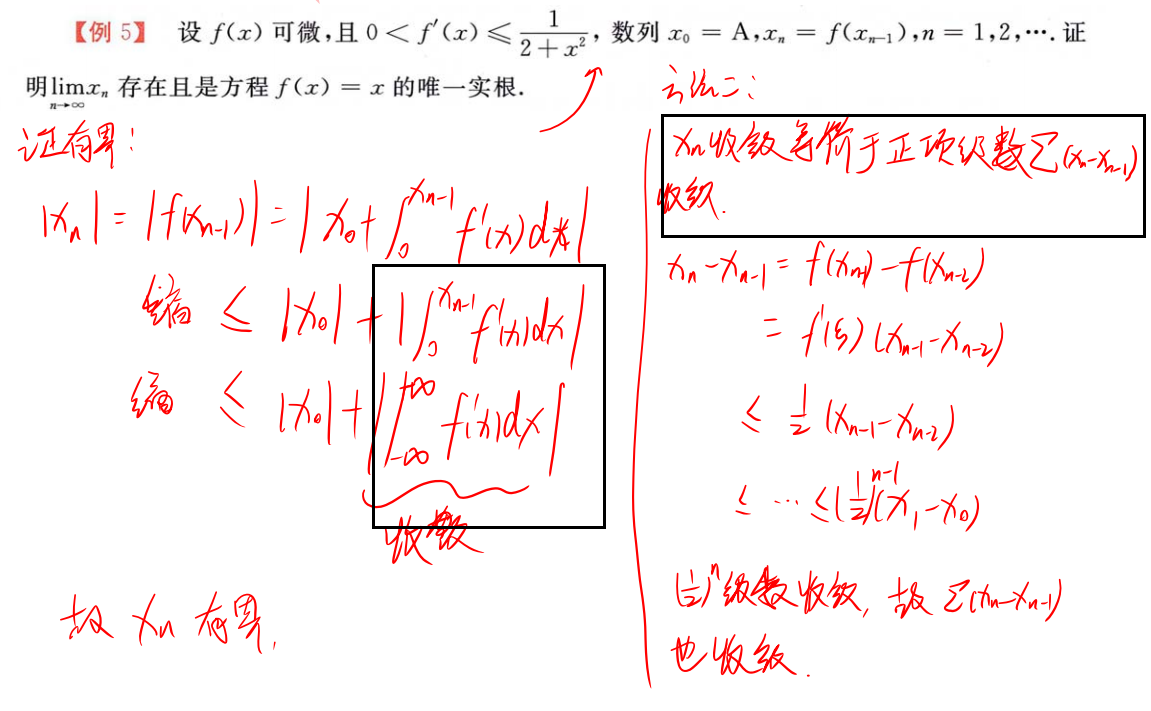 【例 5】 设 f(x) 可微,且 0 < f′(x) ⩽ 1/(2+x²), 数列 x₀ = A,xₙ = f(xₙ₋₁),n = 1,2,⋯. 证
明 lim_{n→∞} xₙ 存在且是方程 f(x) = x 的唯一实根.
证有界:
|xₙ| = |f(xₙ₋₁)| = | x₀+ ∫₀^{xₙ₋₁} f′(x)dx |
缩 ≤ |x₀| + |∫₀^{xₙ₋₁} f′(x)dx|
缩 ≤ |x₀| + |∫_{-∞}^{+∞} f′(x)dx|
收敛
故 xₙ 有界.
方法二:
xₙ收敛等价于正项级数Σ(xₙ-xₙ₋₁)
收敛.
xₙ-xₙ₋₁ = f(xₙ₋₁)-f(xₙ₋₂)
= f′(ξ)(xₙ₋₁-xₙ₋₂)
≤ 1/2 (xₙ₋₁-xₙ₋₂)
≤ ⋯ ≤(1/2)ⁿ⁻¹(x₁-x₀)
(1/2)ⁿ级数收敛, 故 Σ(xₙ-xₙ₋₁)
也收敛.